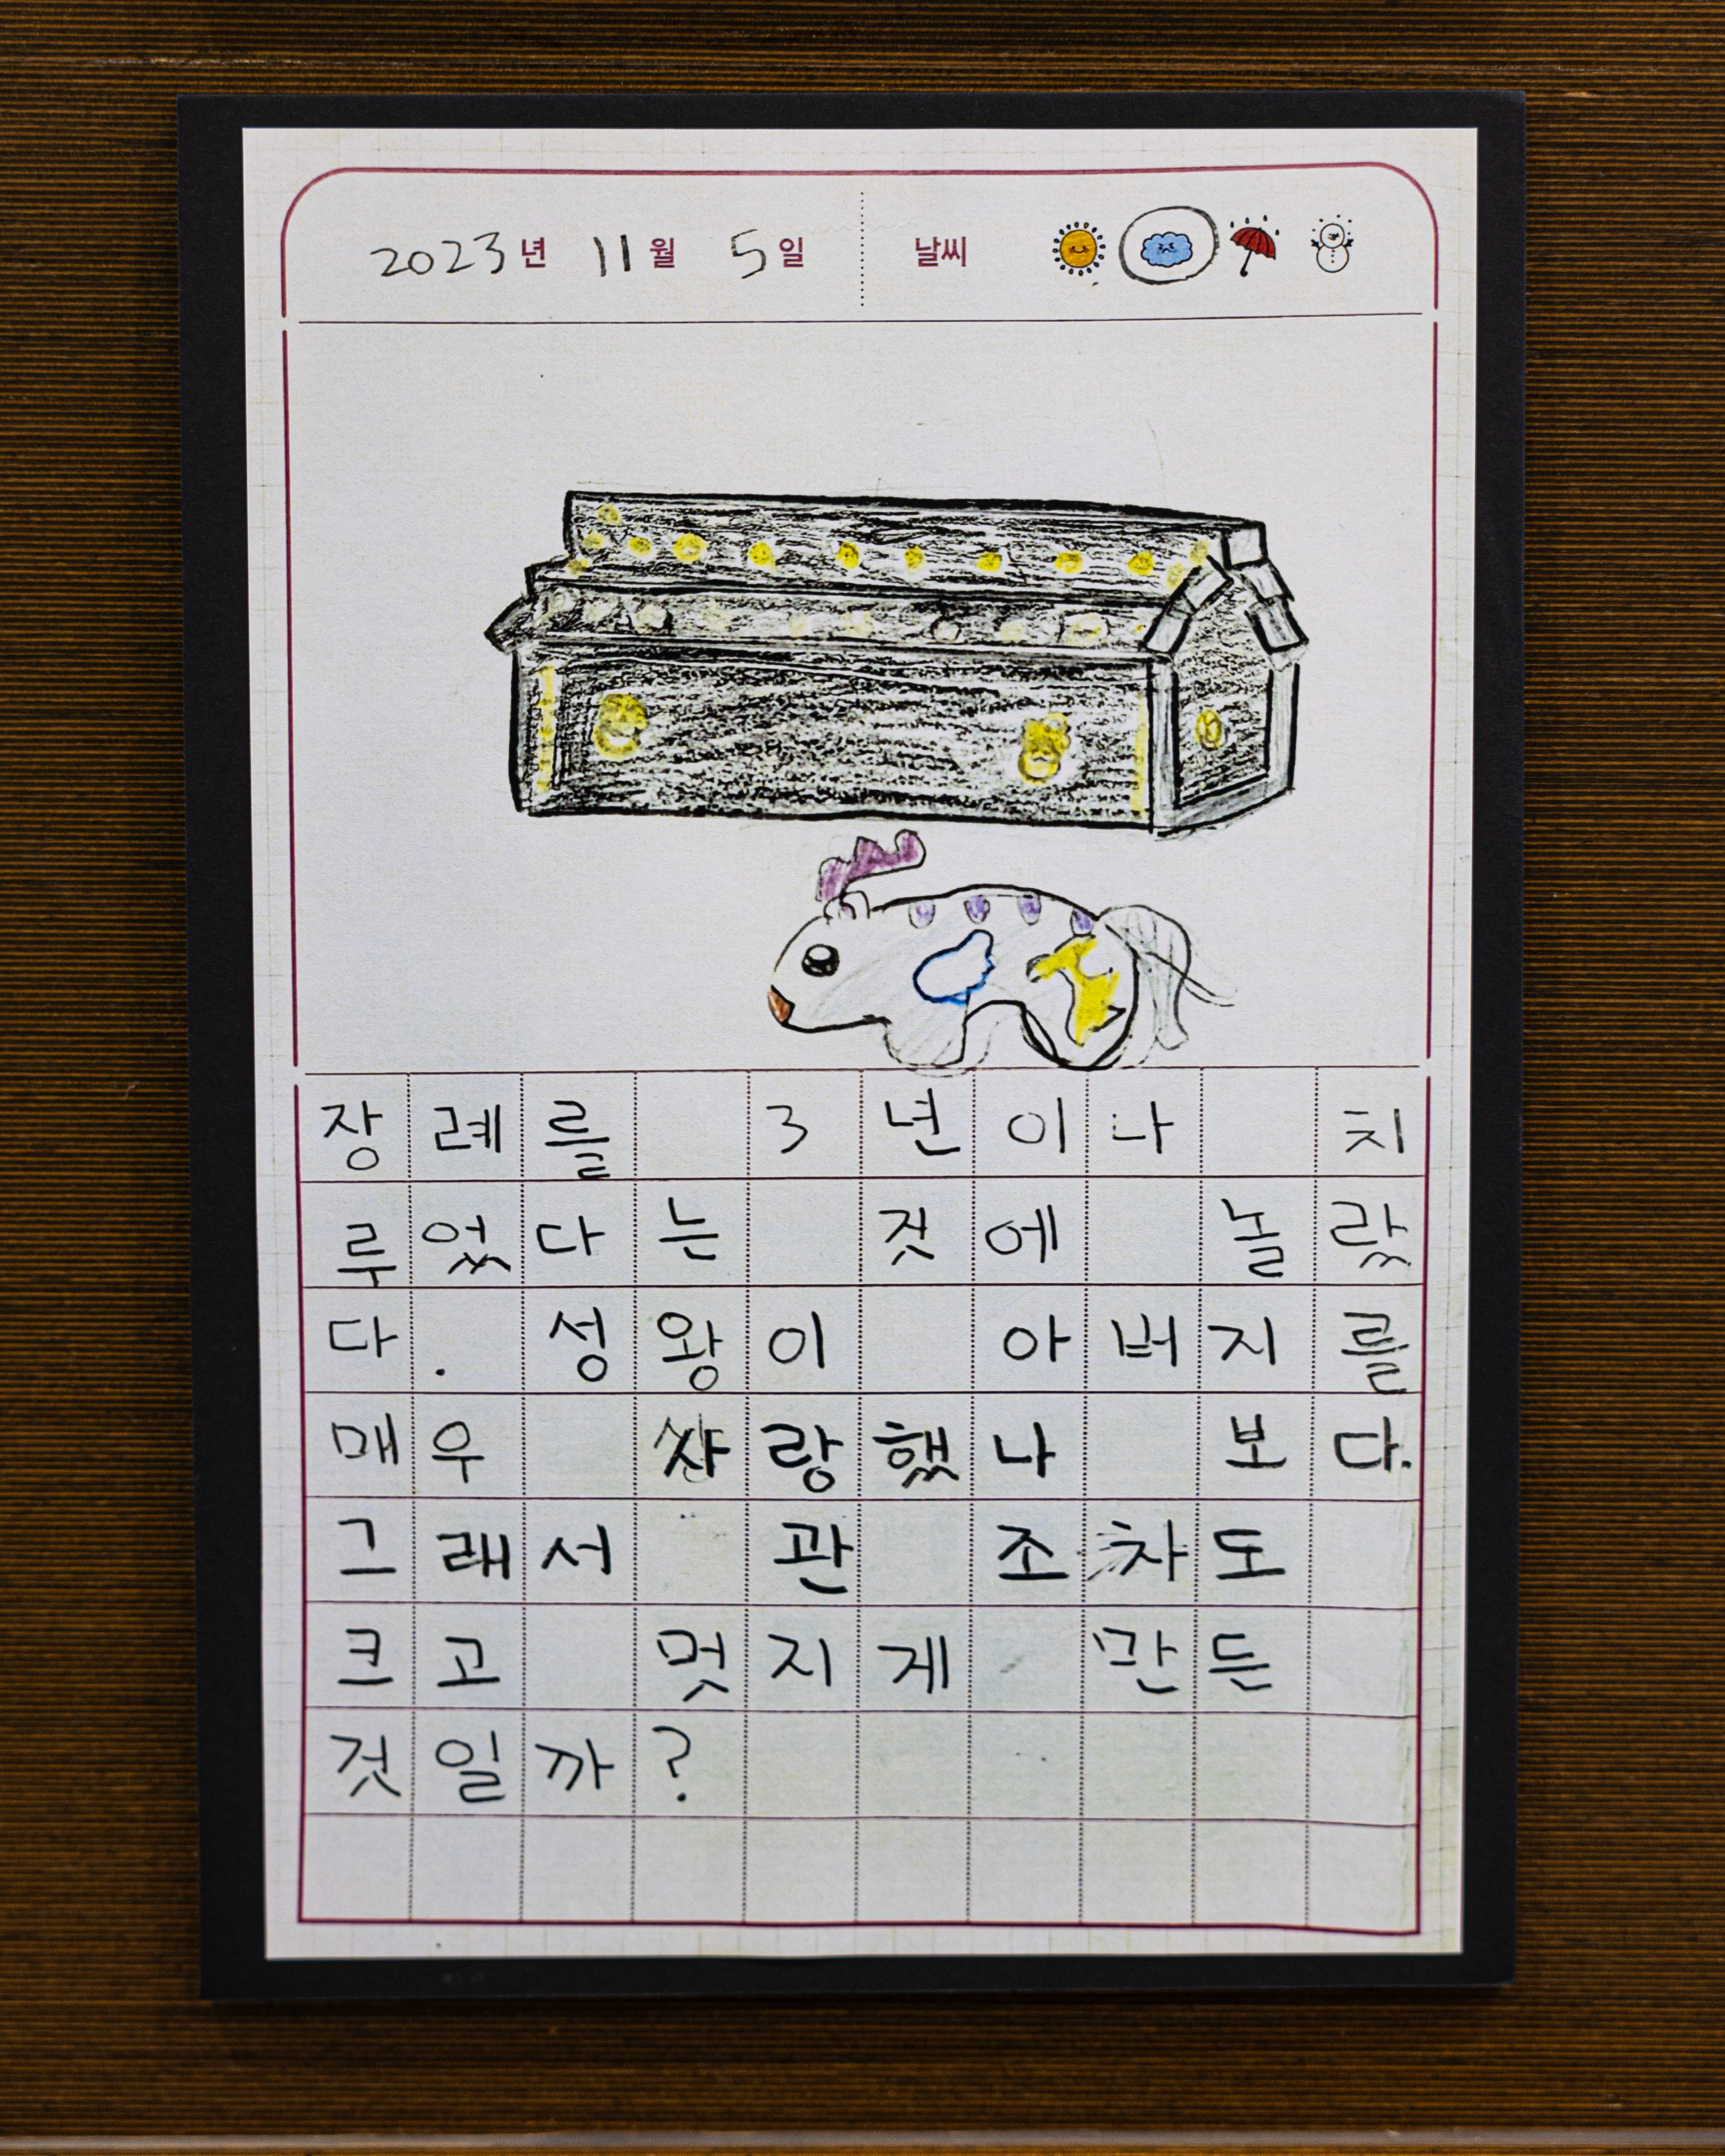 2023년 11월 5일 날씨
장례를 3년이나 치
루었다는 것에 놀랐
다. 성왕이 아버지를
매우 사랑했나 보다.
그래서 관 조차도
크고 멋지게 만든
것일까?